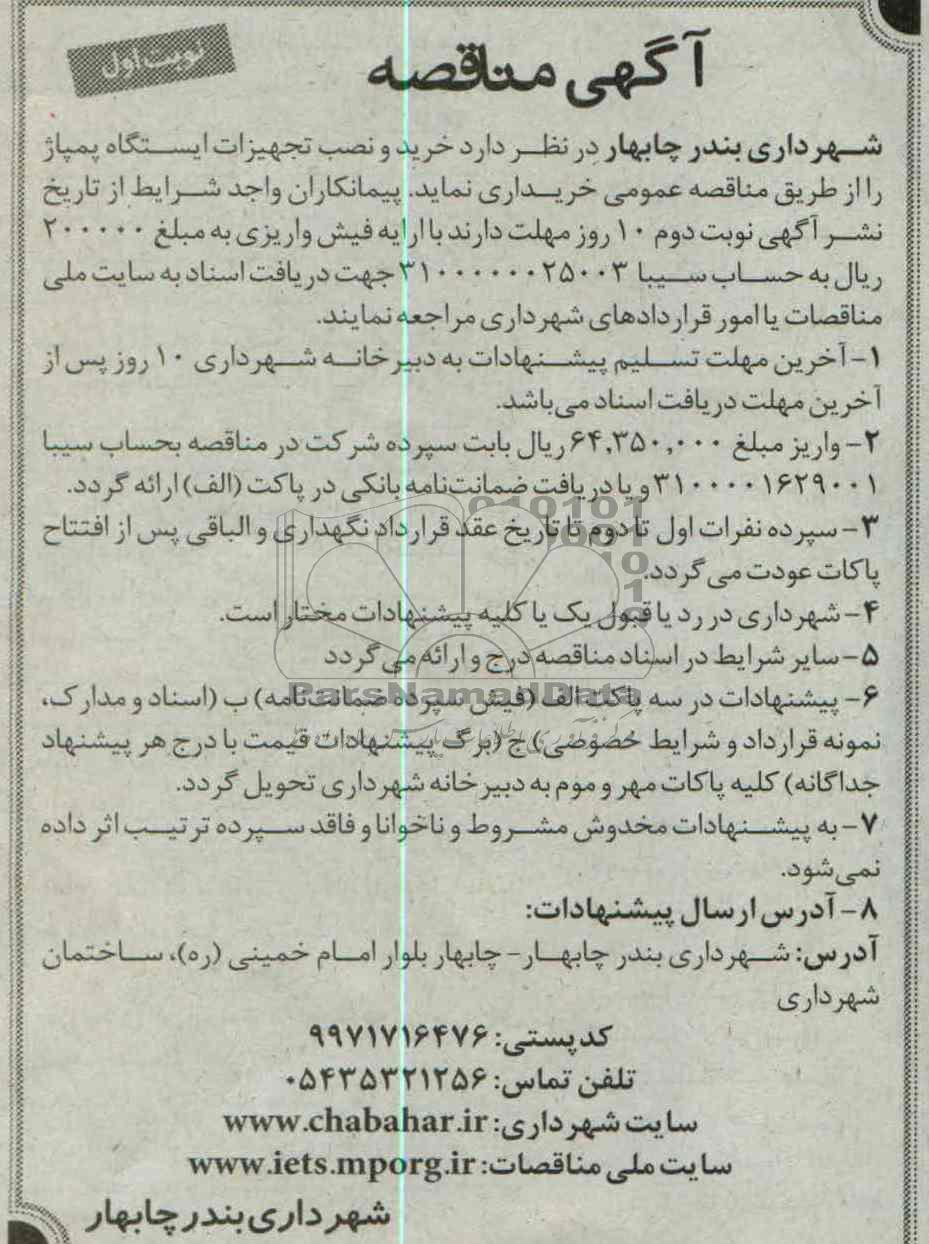 آگهی مناقصه
نوبت اول
شهرداری بندر چابهار در نظر دارد خرید و نصب تجهیزات ایستگاه پمپاژ
را از طریق مناقصه عمومی خریداری نماید. پیمانکاران واجد شرایط از تاریخ
نشر آگهی نوبت دوم ۱۰ روز مهلت دارند با ارایه فیش واریزی به مبلغ ۲۰۰۰۰۰
ریال به حساب سیبا ۳۱۰۰۰۰۰۰۲۵۰۰۳ جهت دریافت اسناد به سایت ملی
مناقصات یا امور قراردادهای شهرداری مراجعه نمایند.
۱- آخرین مهلت تسلیم پیشنهادات به دبیرخانه شهرداری ۱۰ روز پس از
آخرین مهلت دریافت اسناد می‌باشد.
۲- واریز مبلغ ۶۴,۳۵۰,۰۰۰ ریال بابت سپرده شرکت در مناقصه بحساب سیبا
۳۱۰۰۰۰۱۶۲۹۰۰۱ و یا دریافت ضمانت‌نامه بانکی در پاکت (الف) ارائه گردد.
۳- سپرده نفرات اول تا دوم تا تاریخ عقد قرارداد نگهداری و الباقی پس از افتتاح
پاکات عودت می گردد.
۴- شهرداری در رد یا قبول یک یا کلیه پیشنهادات مختار است.
۵- سایر شرایط در اسناد مناقصه درج و ارائه می گردد
ParsNamadData
۶- پیشنهادات در سه پاکت الف (فیش سپرده ضمانت‌نامه) ب (اسناد و مدارک،
نمونه قرارداد و شرایط خصوصی) ج (برگ پیشنهادات قیمت با درج هر پیشنهاد
جداگانه) کلیه پاکات مهر و موم به دبیرخانه شهرداری تحویل گردد.
۷- به پیشنهادات مخدوش مشروط و ناخوانا و فاقد سپرده ترتیب اثر داده
نمی‌شود.
۸- آدرس ارسال پیشنهادات:
آدرس: شهرداری بندر چابهار- چابهار بلوار امام خمینی (ره)، ساختمان
شهرداری
کدپستی: ۹۹۷۱۷۱۶۴۷۶
تلفن تماس: ۰۵۴۳۵۳۲۱۲۵۶
سایت شهرداری: www.chabahar.ir
سایت ملی مناقصات: www.iets.mporg.ir
شهرداری بندر چابهار